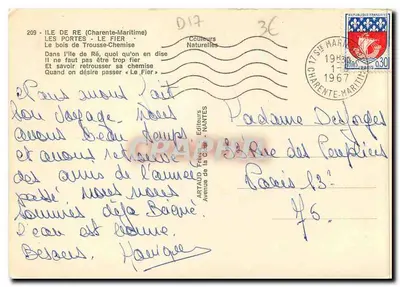 209 - ILE DE RE (Charente-Maritime)
LES PORTES - LE FIER -
Le bois de Trousse-Chemise
Dans l'ile de Ré, quoi qu'on en dise
Il ne faut pas être trop fier
Et savoir retrousser sa chemise
Quand on désire passer « Le Fier »
Couleurs
Naturelles
D17
3€
17 ST MAR
19H30
1967
CHARENTE-MARITIME
0,30
Nous avons fait
bon voyage. Nous
avons beau temps
et avons retrouvé
des amis de l'année
passé. nous nous
sommes déjà baigné
l'eau est bonne.
Baisers
ARTAUD Frères, Éditeurs
Avenue de la Close - NANTES
Madame Desforges
33 Rue des Peupliers
Paris 13e
75.